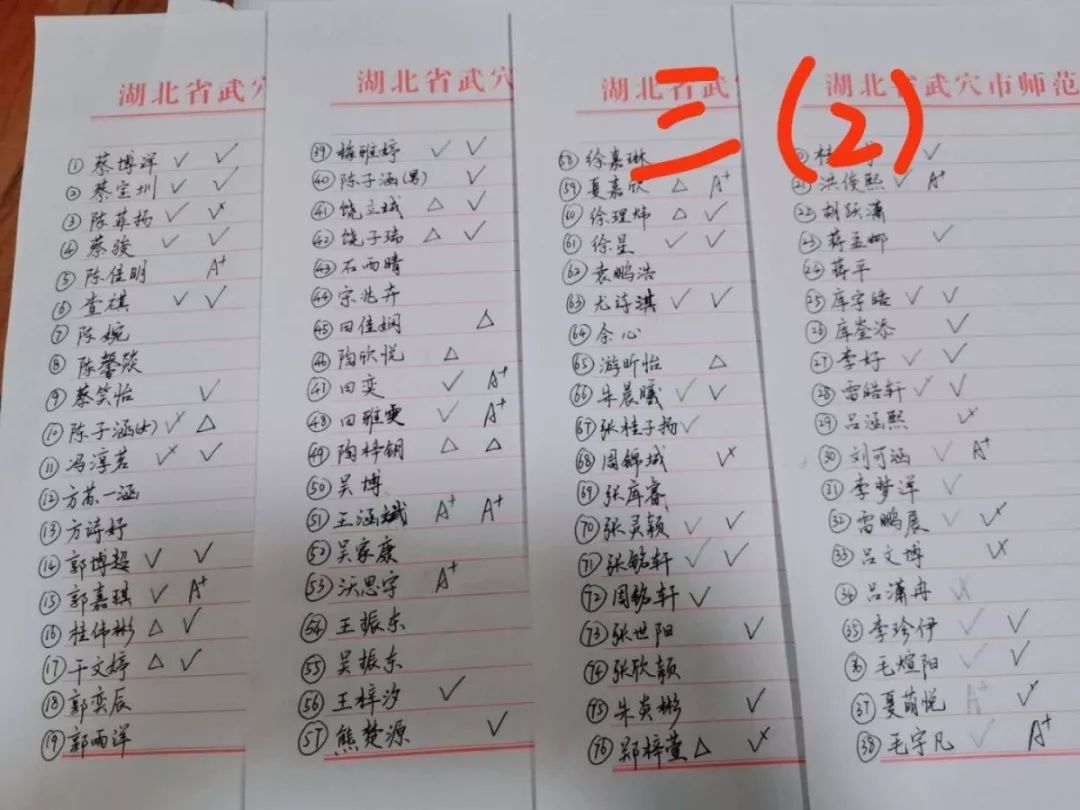 三(2)
湖北省武穴
① 蔡博洋 ✓ ✓
② 蔡宜圳 ✓ ✓
③ 陈菲扬 ✓ ✓
④ 蔡骏 ✓ ✓
⑤ 陈佳明 A+
⑥ 查祺 ✓ ✓
⑦ 陈婉
⑧ 陈馨燚
⑨ 蔡笑怡 ✓
⑩ 陈子涵(女) ✓ △
⑪ 冯淳茗 ✓ ✓
⑫ 方苏一涵
⑬ 方诗妤
⑭ 郭博超 ✓ ✓
⑮ 郭嘉琪 ✓ A+
⑯ 桂伟彬 △ ✓
⑰ 干文婷 △ ✓
⑱ 郭奕辰
⑲ 郭雨洋
湖北省武穴
㊴ 梅雅婷 ✓ ✓
㊵ 陈子涵(男) ✓
㊶ 饶立城 △ ✓
㊷ 饶子瑞 △ ✓
㊸ 石雨晴
㊹ 宗兆卉
㊺ 田佳娴 △
㊻ 陶欣悦 △
㊼ 田奕 ✓ A+
㊽ 田雅雯 ✓ A+
㊾ 陶梓钥 △ △
㊿ 吴博
51 王涵斌 A+ A+
52 吴家康
53 沃思宇 A+
54 王振东
55 吴振东
56 王梓汐 ✓
57 熊楚源 ✓
湖北省武
58 徐嘉琳
59 夏嘉欣 △ A+
60 徐理炜 △ ✓
61 徐星 ✓ ✓
62 袁鹏浩
63 尤诗淇 ✓ ✓
64 余心
65 游昕怡 △
66 朱晨曦 ✓ ✓
67 张桂子扬 ✓
68 周锦城 ✓
69 张库睿
70 张灵颖 ✓ ✓
71 张铭轩 ✓ ✓
72 周铭轩 ✓
73 张世阳 ✓
74 张欣颖
75 朱炎彬 ✓
76 郑梓萱 △ ✓
湖北省武穴市师范
桂 ✓
㉑ 洪俊熙 ✓ A+
㉒ 胡跃潇
㉓ 蒋孟娜 ✓
㉔ 蒋平
㉕ 库宇皓 ✓ ✓
㉖ 库崟添 ✓
㉗ 李好 ✓ ✓
㉘ 雷皓轩 ✓ ✓
㉙ 吕涵熙 ✓
㉚ 刘可涵 ✓ A+
㉛ 李梦洋 ✓
㉜ 雷鹏展 ✓ ✓
㉝ 吕文博 ✓
㉞ 吕潇冉 ✓
㉟ 李珍伊 ✓ ✓
㊱ 毛煊阳 ✓ ✓
㊲ 夏萌悦 A+ ✓
㊳ 毛宇凡 ✓ A+